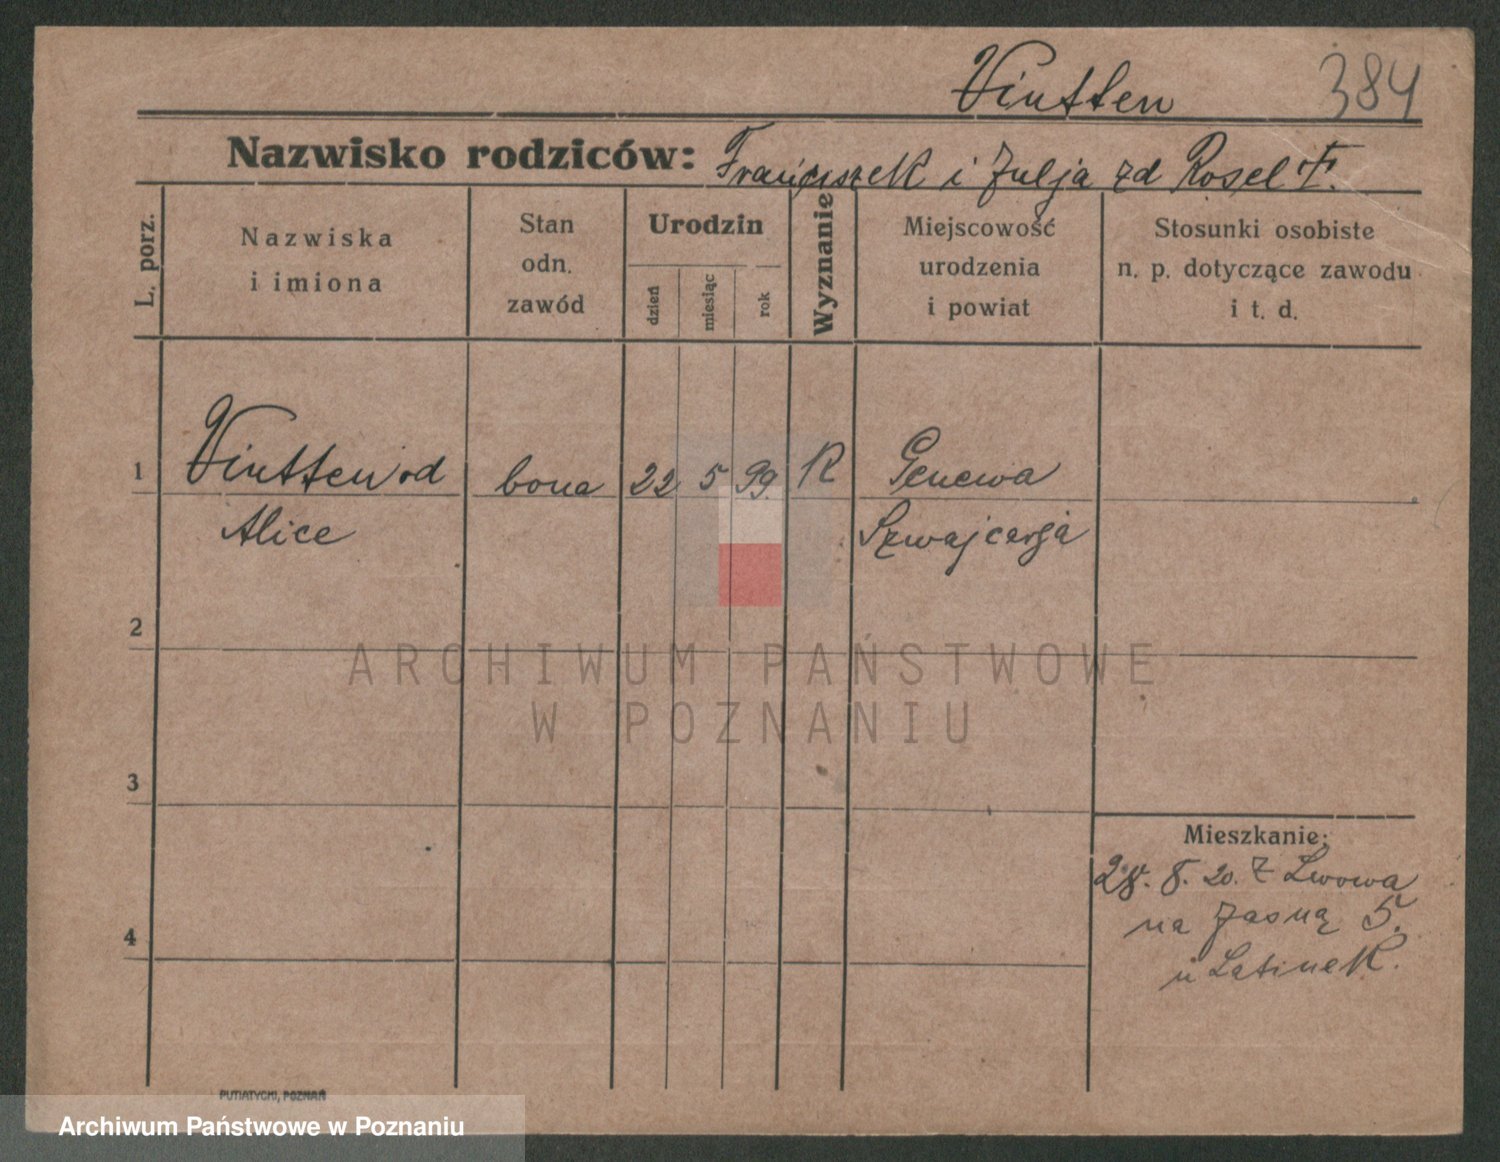 Vintten 384
Nazwisko rodziców: Franciszek i Julja zd Rosel †.
L. porz.
Nazwiska
i imiona
Stan
odn.
zawód
Urodzin
dzień
miesiąc
rok
Wyznanie
Miejscowość
urodzenia
i powiat
Stosunki osobiste
n. p. dotyczące zawodu
i t. d.
1 Vintten bona 22 5 99. R Genewa
Alice Szwajcarja
2
3
4
Mieszkanie:
8. 20. z Lwowa
na Jasną 5.
u Latinek.
PUTIATYCKI, POZNAŃ
ARCHIWUM PAŃSTWOWE
W POZNANIU
Archiwum Państwowe w Poznaniu